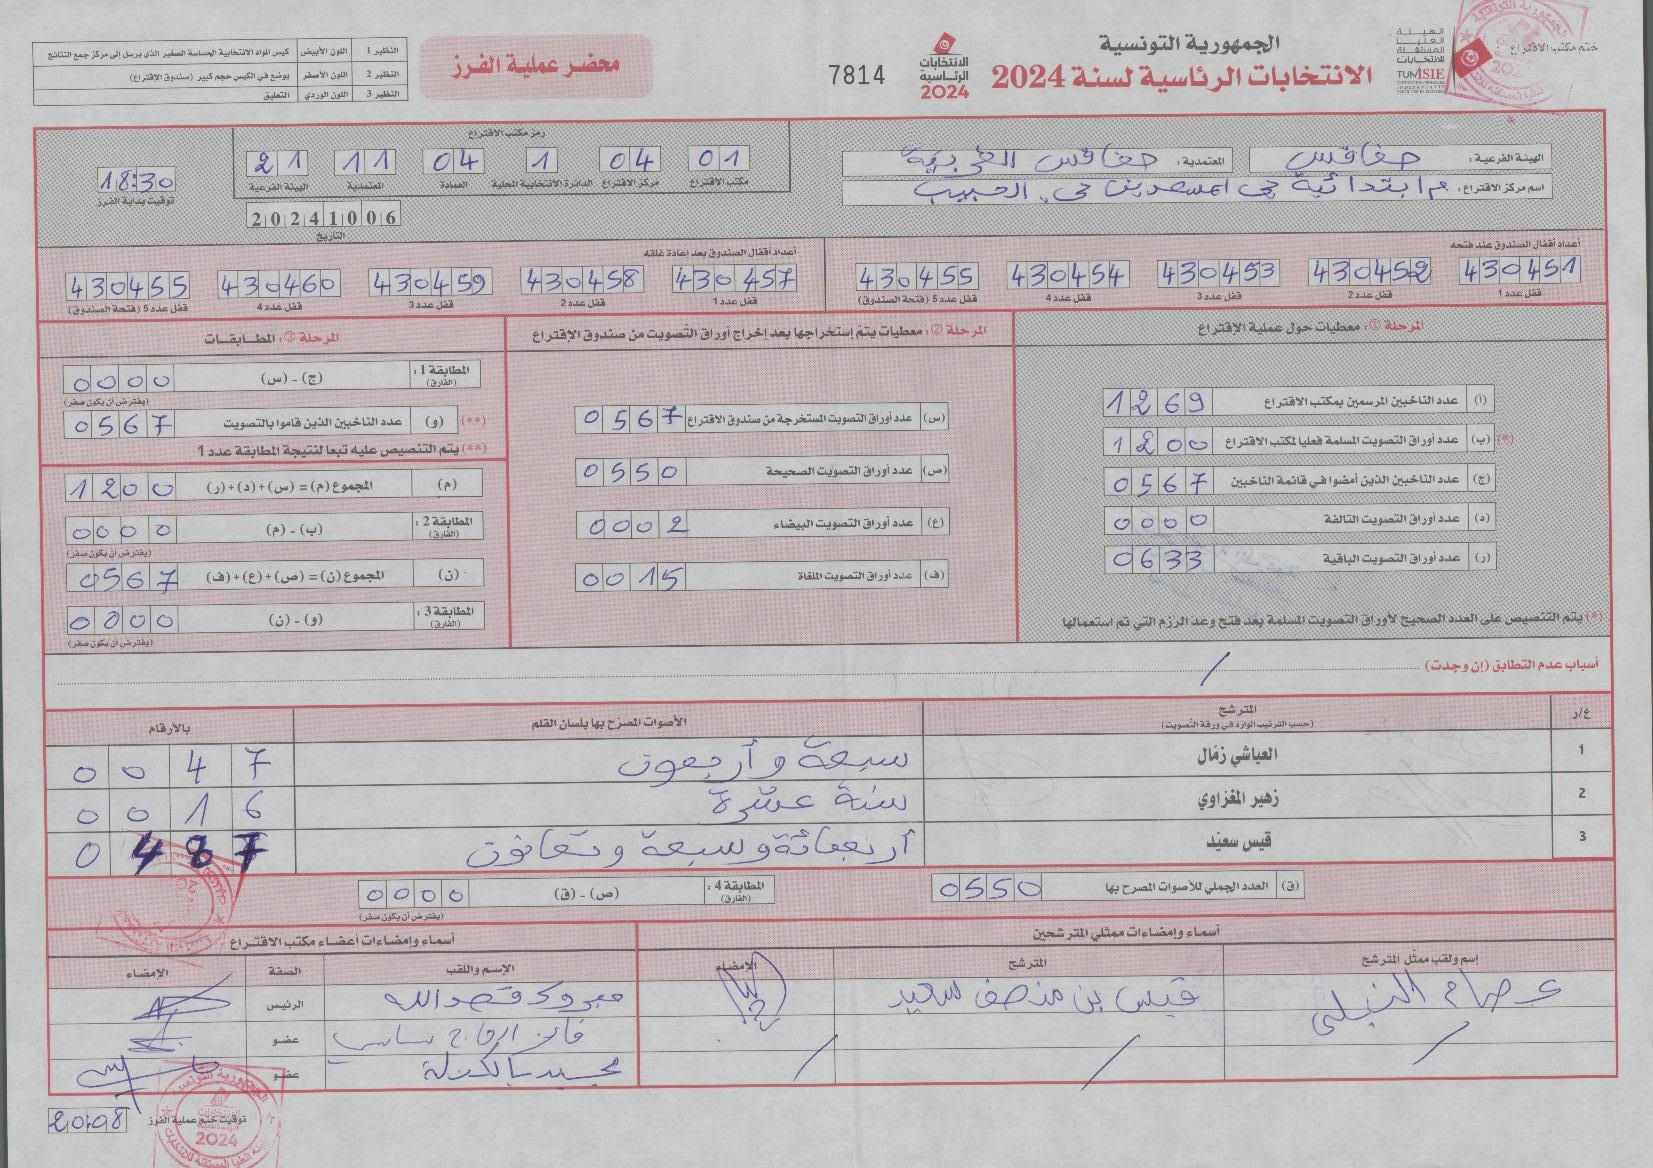 الجمهورية التونسية
الانتخابات الرئاسية لسنة 2024
ختم مكتب الاقتراع
الهيئة العليا المستقلة للانتخابات
TUNISIE
الانتخابات الرئاسية 2024
7814
محضر عملية الفرز
النظير 1 اللون الأبيض كيس المواد الانتخابية الحساسة الصغير الذي يرسل إلى مركز جمع النتائج
النظير 2 اللون الأصفر يوضع في الكيس حجم كبير (صندوق الاقتراع)
النظير 3 اللون الوردي التعليق
الهيئة الفرعية: صفاقس المعتمدية: صفاقس الغربية
اسم مركز الاقتراع: م ابتدائية حي الحبيب
رمز مكتب الاقتراع
01 04 1 04 11 21
مكتب الاقتراع مركز الاقتراع الدائرة الانتخابية المحلية العمادة المعتمدية الهيئة الفرعية
20241006
التاريخ
18:30
توقيت بداية الفرز
أعداد أقفال الصندوق عند فتحه
430451 430452 430453 430454 430455
قفل عدد 1 قفل عدد 2 قفل عدد 3 قفل عدد 4 قفل عدد 5 (فتحة الصندوق)
أعداد أقفال الصندوق بعد إعادة غلقه
430457 430458 430459 430460 430455
قفل عدد 1 قفل عدد 2 قفل عدد 3 قفل عدد 4 قفل عدد 5 (فتحة الصندوق)
المرحلة ①: معطيات حول عملية الإقتراع
(أ) عدد الناخبين المرسمين بمكتب الاقتراع 1269
(*) (ب) عدد أوراق التصويت المسلمة فعليا لمكتب الاقتراع 1200
(ج) عدد الناخبين الذين أمضوا في قائمة الناخبين 0567
(د) عدد أوراق التصويت التالفة 0000
(ر) عدد أوراق التصويت الباقية 0633
(*) يتم التنصيص على العدد الصحيح لأوراق التصويت المسلمة بعد فتح وعد الرزم التي تم استعمالها
المرحلة ②: معطيات يتم إستخراجها بعد إخراج أوراق التصويت من صندوق الإقتراع
(س) عدد أوراق التصويت المستخرجة من صندوق الاقتراع 0567
(ص) عدد أوراق التصويت الصحيحة 0550
(ع) عدد أوراق التصويت البيضاء 0002
(ف) عدد أوراق التصويت الملغاة 0015
المرحلة ③: المطابقات
المطابقة 1: (الفارق) (ج) - (س) 0000
(يفترض أن يكون صفر)
(**) (و) عدد الناخبين الذين قاموا بالتصويت 0567
(**) يتم التنصيص عليه تبعا لنتيجة المطابقة عدد 1
(م) المجموع (م) = (س)+(د)+(ر) 1200
المطابقة 2: (الفارق) (ب) - (م) 0000
(يفترض أن يكون صفر)
(ن) المجموع (ن) = (ص)+(ع)+(ف) 0567
المطابقة 3: (الفارق) (و) - (ن) 0000
(يفترض أن يكون صفر)
أسباب عدم التطابق (إن وجدت) /
ع/ر المترشح (حسب الترتيب الوارد في ورقة التصويت) الأصوات المصرح بها بلسان القلم بالأرقام
1 العياشي زمّال سبعة وأربعون 0047
2 زهير المغزاوي ستة عشرة 0016
3 قيس سعيّد أربعمائة وسبعة وثمانون 0487
(ق) العدد الجملي للأصوات المصرح بها 0550
المطابقة 4: (الفارق) (ص) - (ق) 0000
(يفترض أن يكون صفر)
أسماء وإمضاءات ممثلي المترشحين
إسم ولقب ممثل المترشح المترشح الإمضاء
عصام النبلي قيس بن منصف سعيد
/ / /
أسماء وإمضاءات أعضاء مكتب الاقتراع
الإسم واللقب الصفة الإمضاء
مبروك الرئيس
عضو
عضو
توقيت ختم عملية الفرز 20:08